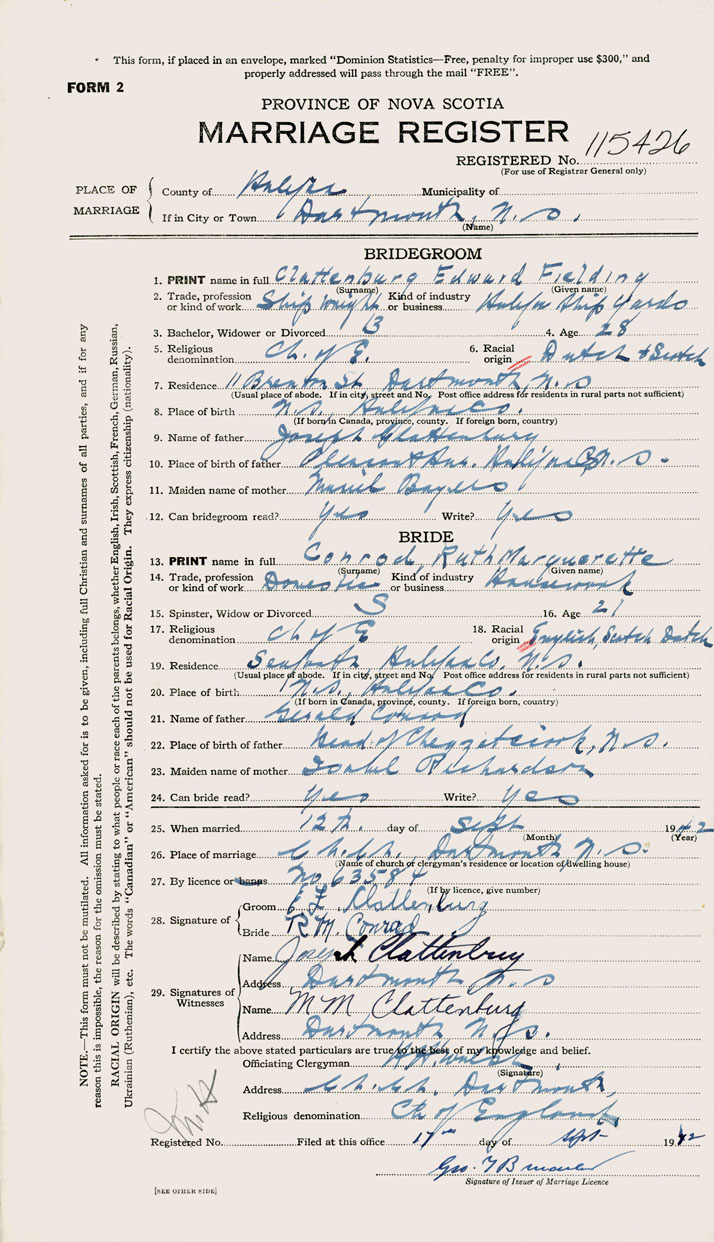 This form, if placed in an envelope, marked "Dominion Statistics—Free, penalty for improper use $300," and
properly addressed will pass through the mail "FREE".
FORM 2
PROVINCE OF NOVA SCOTIA
MARRIAGE REGISTER
REGISTERED No. 115426
(For use of Registrar General only)
PLACE OF MARRIAGE
County of Halifax Municipality of
If in City or Town Dartmouth, N.S.
(Name)
BRIDEGROOM
1. PRINT name in full Clattenburg Edward Fielding
(Surname) (Given name)
2. Trade, profession or kind of work Ship wright Kind of industry or business Halifax Ship Yards
3. Bachelor, Widower or Divorced B 4. Age 28
5. Religious denomination Ch. of E. 6. Racial origin Dutch & Scotch
7. Residence 11 Brenton St. Dartmouth, N.S
(Usual place of abode. If in city, street and No. Post office address for residents in rural parts not sufficient)
8. Place of birth N.S., Halifax Co.
(If born in Canada, province, county. If foreign born, country)
9. Name of father Joseph Clattenburg
10. Place of birth of father Pleasant Halifax Co N.S.
11. Maiden name of mother Muriel Bayers
12. Can bridegroom read? Yes Write? Yes
BRIDE
13. PRINT name in full Conrod, Ruth Marguerette
(Surname) (Given name)
14. Trade, profession or kind of work Domestic Kind of industry or business Housework
15. Spinster, Widow or Divorced S 16. Age 21
17. Religious denomination Ch of E 18. Racial origin English, Scotch Dutch
19. Residence Seaforth, Halifax Co. N.S.
(Usual place of abode. If in city, street and No. Post office address for residents in rural parts not sufficient)
20. Place of birth N.S., Halifax Co.
(If born in Canada, province, county. If foreign born, country)
21. Name of father Gerald Conrod
22. Place of birth of father Head of Chezzetcook, N.S.
23. Maiden name of mother Isabel Richardson
24. Can bride read? Yes Write? Yes
25. When married 12th day of Sept 1942
(Month) (Year)
26. Place of marriage Ch. Ch. Dartmouth N.S.
(Name of church or clergyman's residence or location of dwelling house)
27. By licence or banns No. 63584
(If by licence, give number)
28. Signature of
Groom E F Clattenburg
Bride R.M. Conrad
29. Signatures of Witnesses
Name Joseph Clattenburg
Address Dartmouth N S
Name M M Clattenburg
Address Dartmouth N.S.
I certify the above stated particulars are true to the best of my knowledge and belief.
Officiating Clergyman
(Signature)
Address Ch. Ch. Dartmouth,
Religious denomination Ch of England
Registered No. Filed at this office 17th day of Sept 1942
Signature of Issuer of Marriage Licence
[SEE OTHER SIDE]
NOTE.—This form must not be mutilated. All information asked for is to be given, including full Christian and surnames of all parties, and if for any
reason this is impossible, the reason for the omission must be stated.
RACIAL ORIGIN will be described by stating to what people or race each of the parents belongs, whether English, Irish, Scottish, French, German, Russian,
Ukrainian (Ruthenian), etc. The words "Canadian" or "American" should not be used for Racial Origin. They express citizenship (nationality).